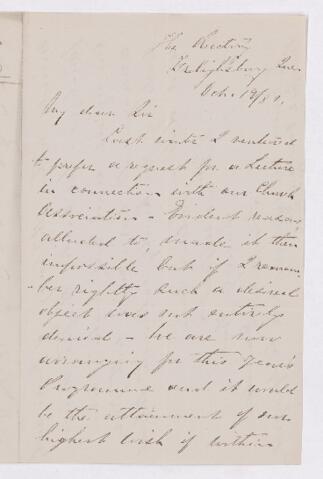 The Rectory
Frelighsburg Que.
Oct. 19/81.
My dear Sir
Last winter I ventured
to prefer a request for a Lecture
in connection with our Church
Association - Prudent reasons,
alluded to, made it then
impossible but if I remem
-ber rightly such a desired
object was not entirely
denied - We are now
arranging for this year's
Programme and it would
be the attainment of our
highest wish if within